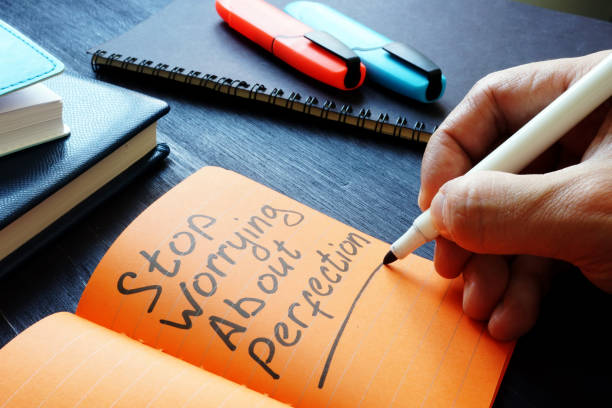 Stop
Worrying
About
perfection